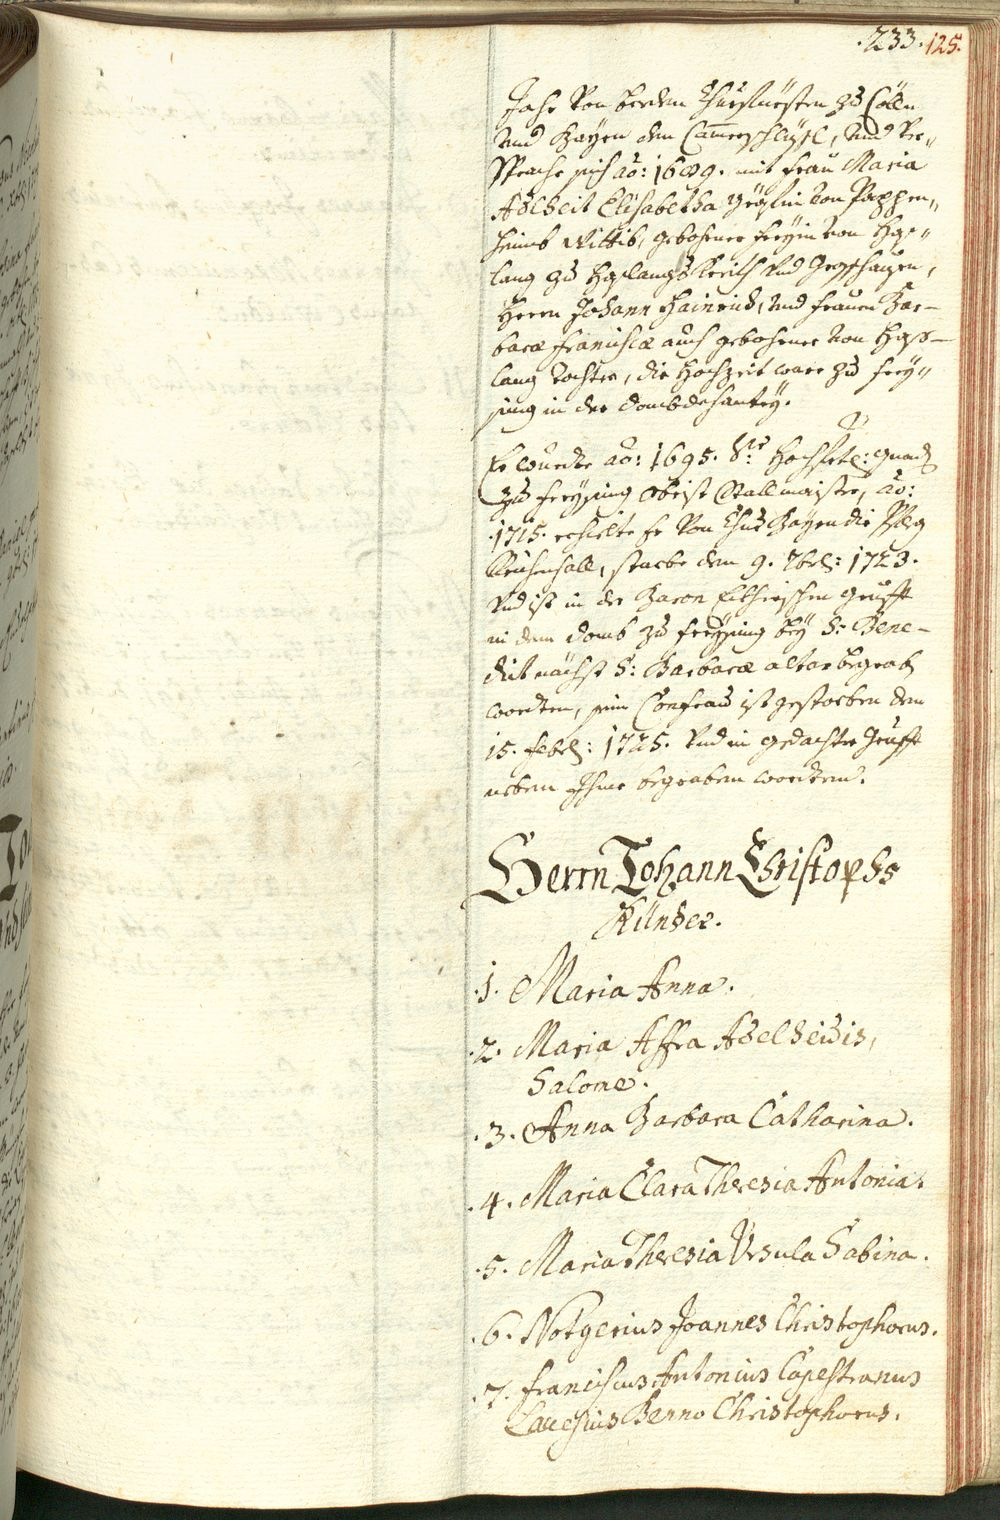 .233. 125.
Jahr von beeden Churfürsten zu Cölln
und Bayrn den Cammerschlüssl, und ver„
sprache sich ao: 1689. mit Frau Maria
Adelheit Elisabetha Gräfin von Pappen„
heimb Wittib, gebohrner Freyin von Has„
lang zu Haslangkreith und Hohenkammer,
Herrn Johann Hainrich, und Frauen Bar-
baræ Franciscæ auch gebohrner von Has-
lang Tochter, die Hochzeit ware zu Frey„
sing in der Dombdechantey.
Er wurdte ao: 1695. Sr. Hochfrtl: Gnad
zu Freysing Obrist Stallmaister, ao:
.1715. erhielte Er von Chur Bayrn die Pfleg
Reichenhall, starbe den 9. 7brl: 1723.
und ist in der Baron Grufft
in dem Domb zu Freysing bey S: Bene-
dict nächst S: Barbaræ altar begrab
worden, sein Ehefrau ist gestorben den
15. Febrl: 1725. und in gedachter Grufft
neben Ihme begraben worden.
Herrn Johann Christophs
Künder.
.1. Maria Anna.
.2. Maria Affra Adelheidis,
Salome.
.3. Anna Barbara Catharina.
.4. Maria Clara Theresia Antonia.
.5. Maria Theresia Ursula Sabina.
.6. Notgerius Joannes Christophorus.
.7. Franciscus Antonius Capestranus
Benno Christophorus.